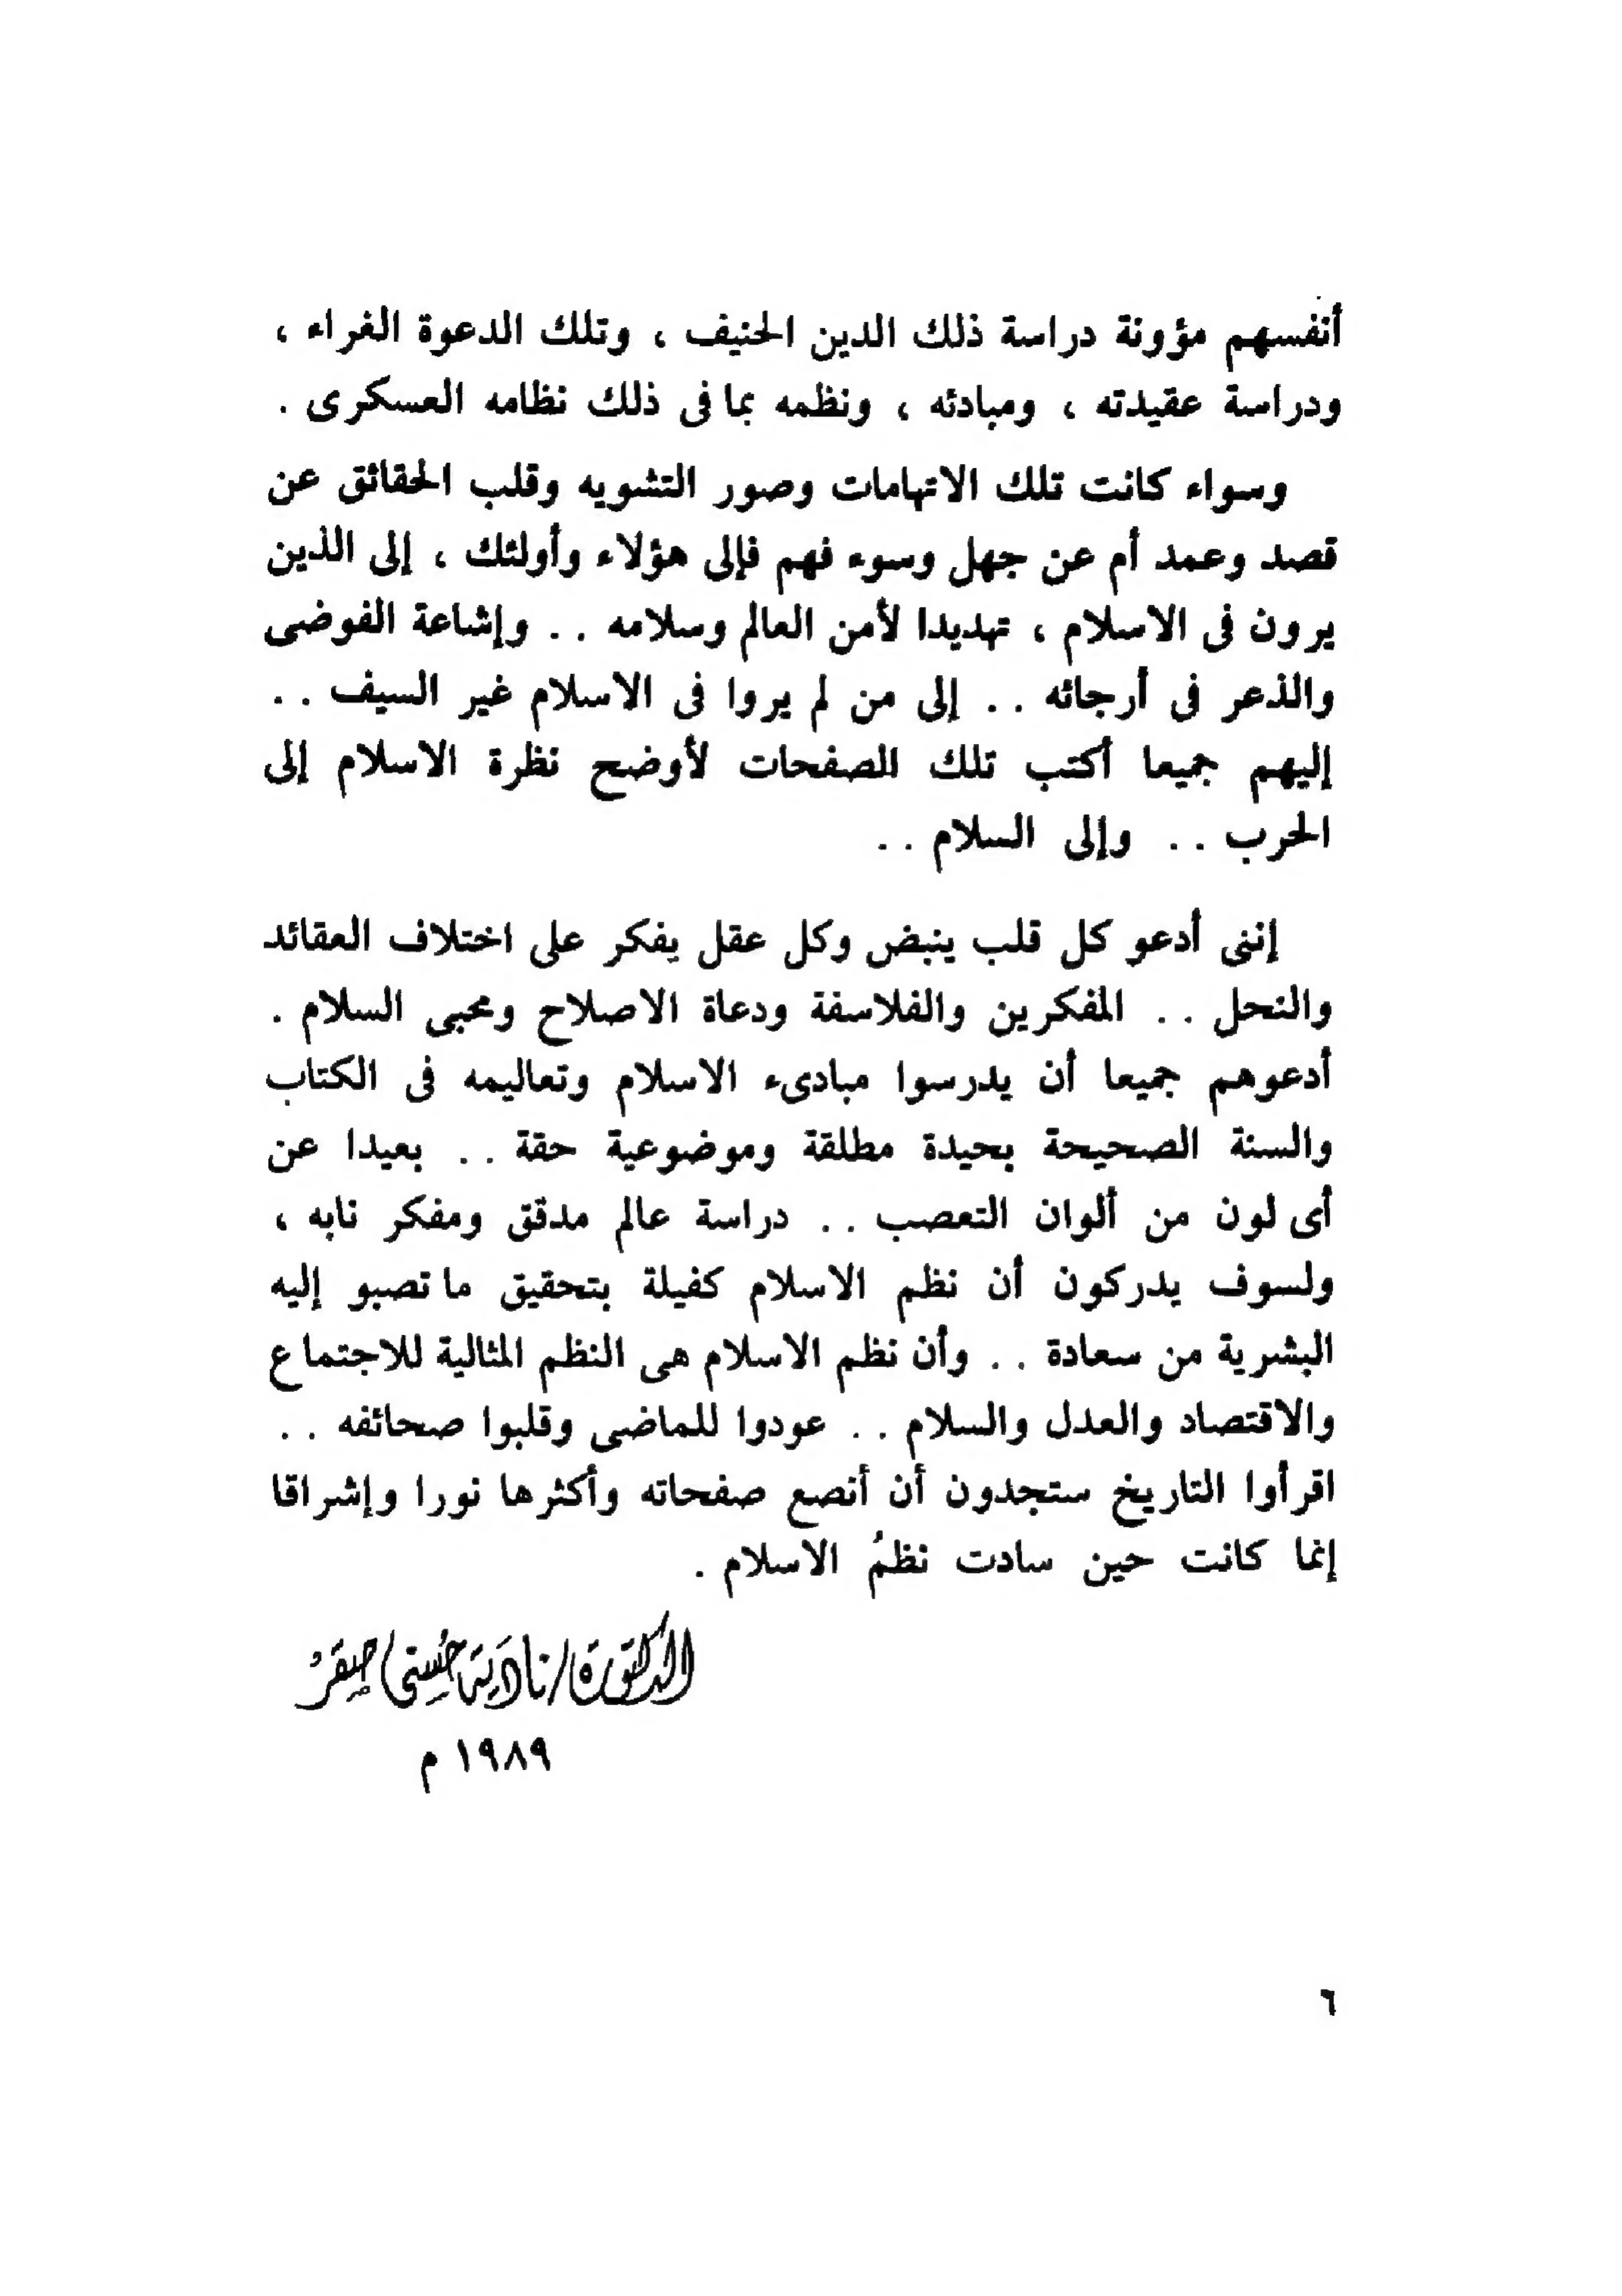 أنفسهم مؤونة دراسة ذلك الدين الحنيف ، وتلك الدعوة الغراء ،
ودراسة عقيدته ، ومبادئه ، ونظمه بما فى ذلك نظامه العسكرى .
وسواء كانت تلك الاتهامات وصور التشويه وقلب الحقائق عن
قصد وعمد أم عن جهل وسوء فهم فإلى هؤلاء وأولئك ، إلى الذين
يرون فى الاسلام ، تهديدا لأمن العالم وسلامه .. وإشاعة الفوضى
والذعر فى أرجائه .. إلى من لم يروا فى الاسلام غير السيف ..
إليهم جميعا أكتب تلك الصفحات لأوضح نظرة الاسلام إلى
الحرب .. وإلى السلام ..
إننى أدعو كل قلب ينبض وكل عقل يفكر على اختلاف العقائد
والنحل .. المفكرين والفلاسفة ودعاة الاصلاح ومحبى السلام .
أدعوهم جميعا أن يدرسوا مبادىء الاسلام وتعاليمه فى الكتاب
والسنة الصحيحة بحيدة مطلقة وموضوعية حقة .. بعيدا عن
أى لون من ألوان التعصب .. دراسة عالم مدقق ومفكر نابه ،
ولسوف يدركون أن نظم الاسلام كفيلة بتحقيق ما تصبو إليه
البشرية من سعادة .. وأن نظم الاسلام هى النظم المثالية للاجتماع
والاقتصاد والعدل والسلام .. عودوا للماضى وقلبوا صحائفه ..
اقرأوا التاريخ ستجدون أن أنصع صفحاته وأكثرها نورا وإشراقا
إنما كانت حين سادت نظمُ الاسلام .
الدكتورة/نادية حسنى صقر
١٩٨٩ م
٦